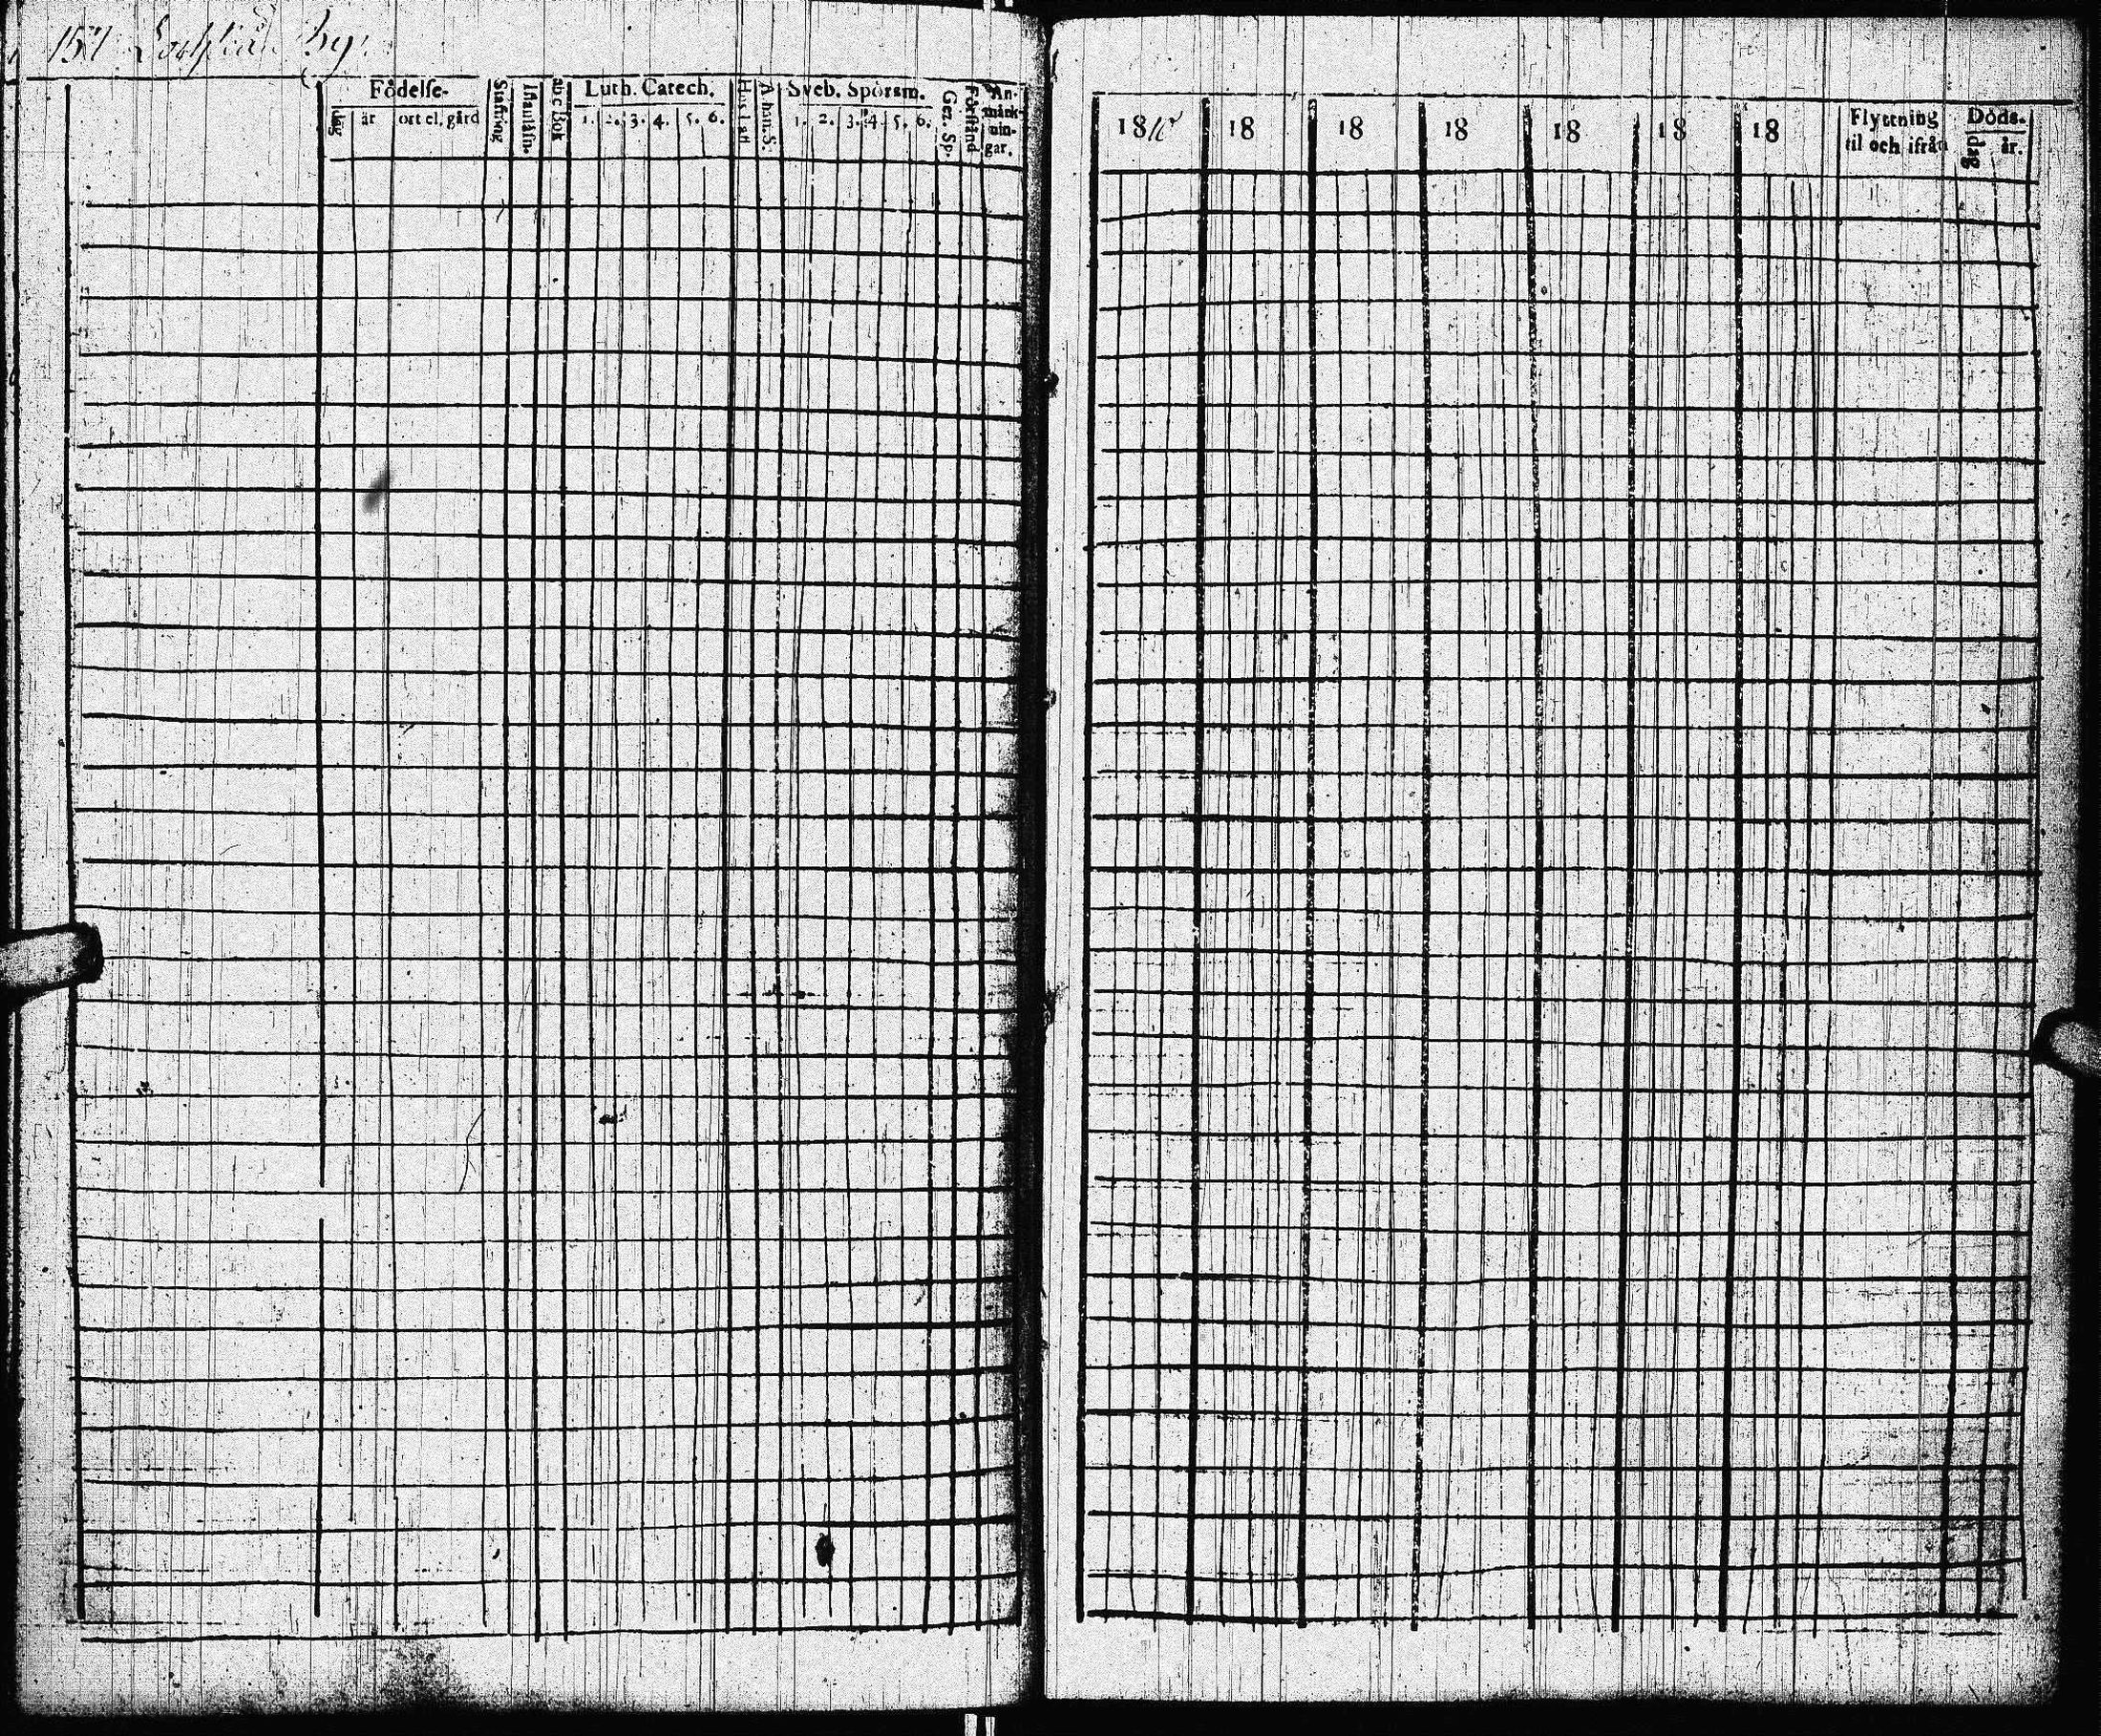 157 by
Födelse-
dag år ort el. gård
Stafning
abc Bok
Luth. Catech.
1. 2. 3. 4. 5. 6.
A. han. S.
Sveb. Spörsm.
1. 2. 3. 4. 5. 6.
Gez. Sp.
Förstånd
An-
märk-
nin-
gar.
18 18 18 18 18 18 18
Flyttning
til och ifrån
Döds-
dag år.